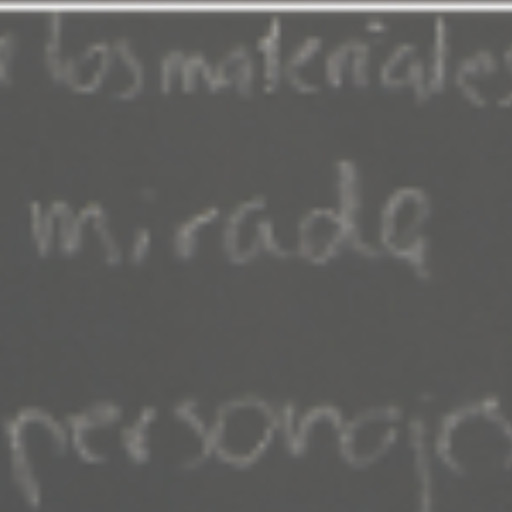 los materiales
mirada
personaje